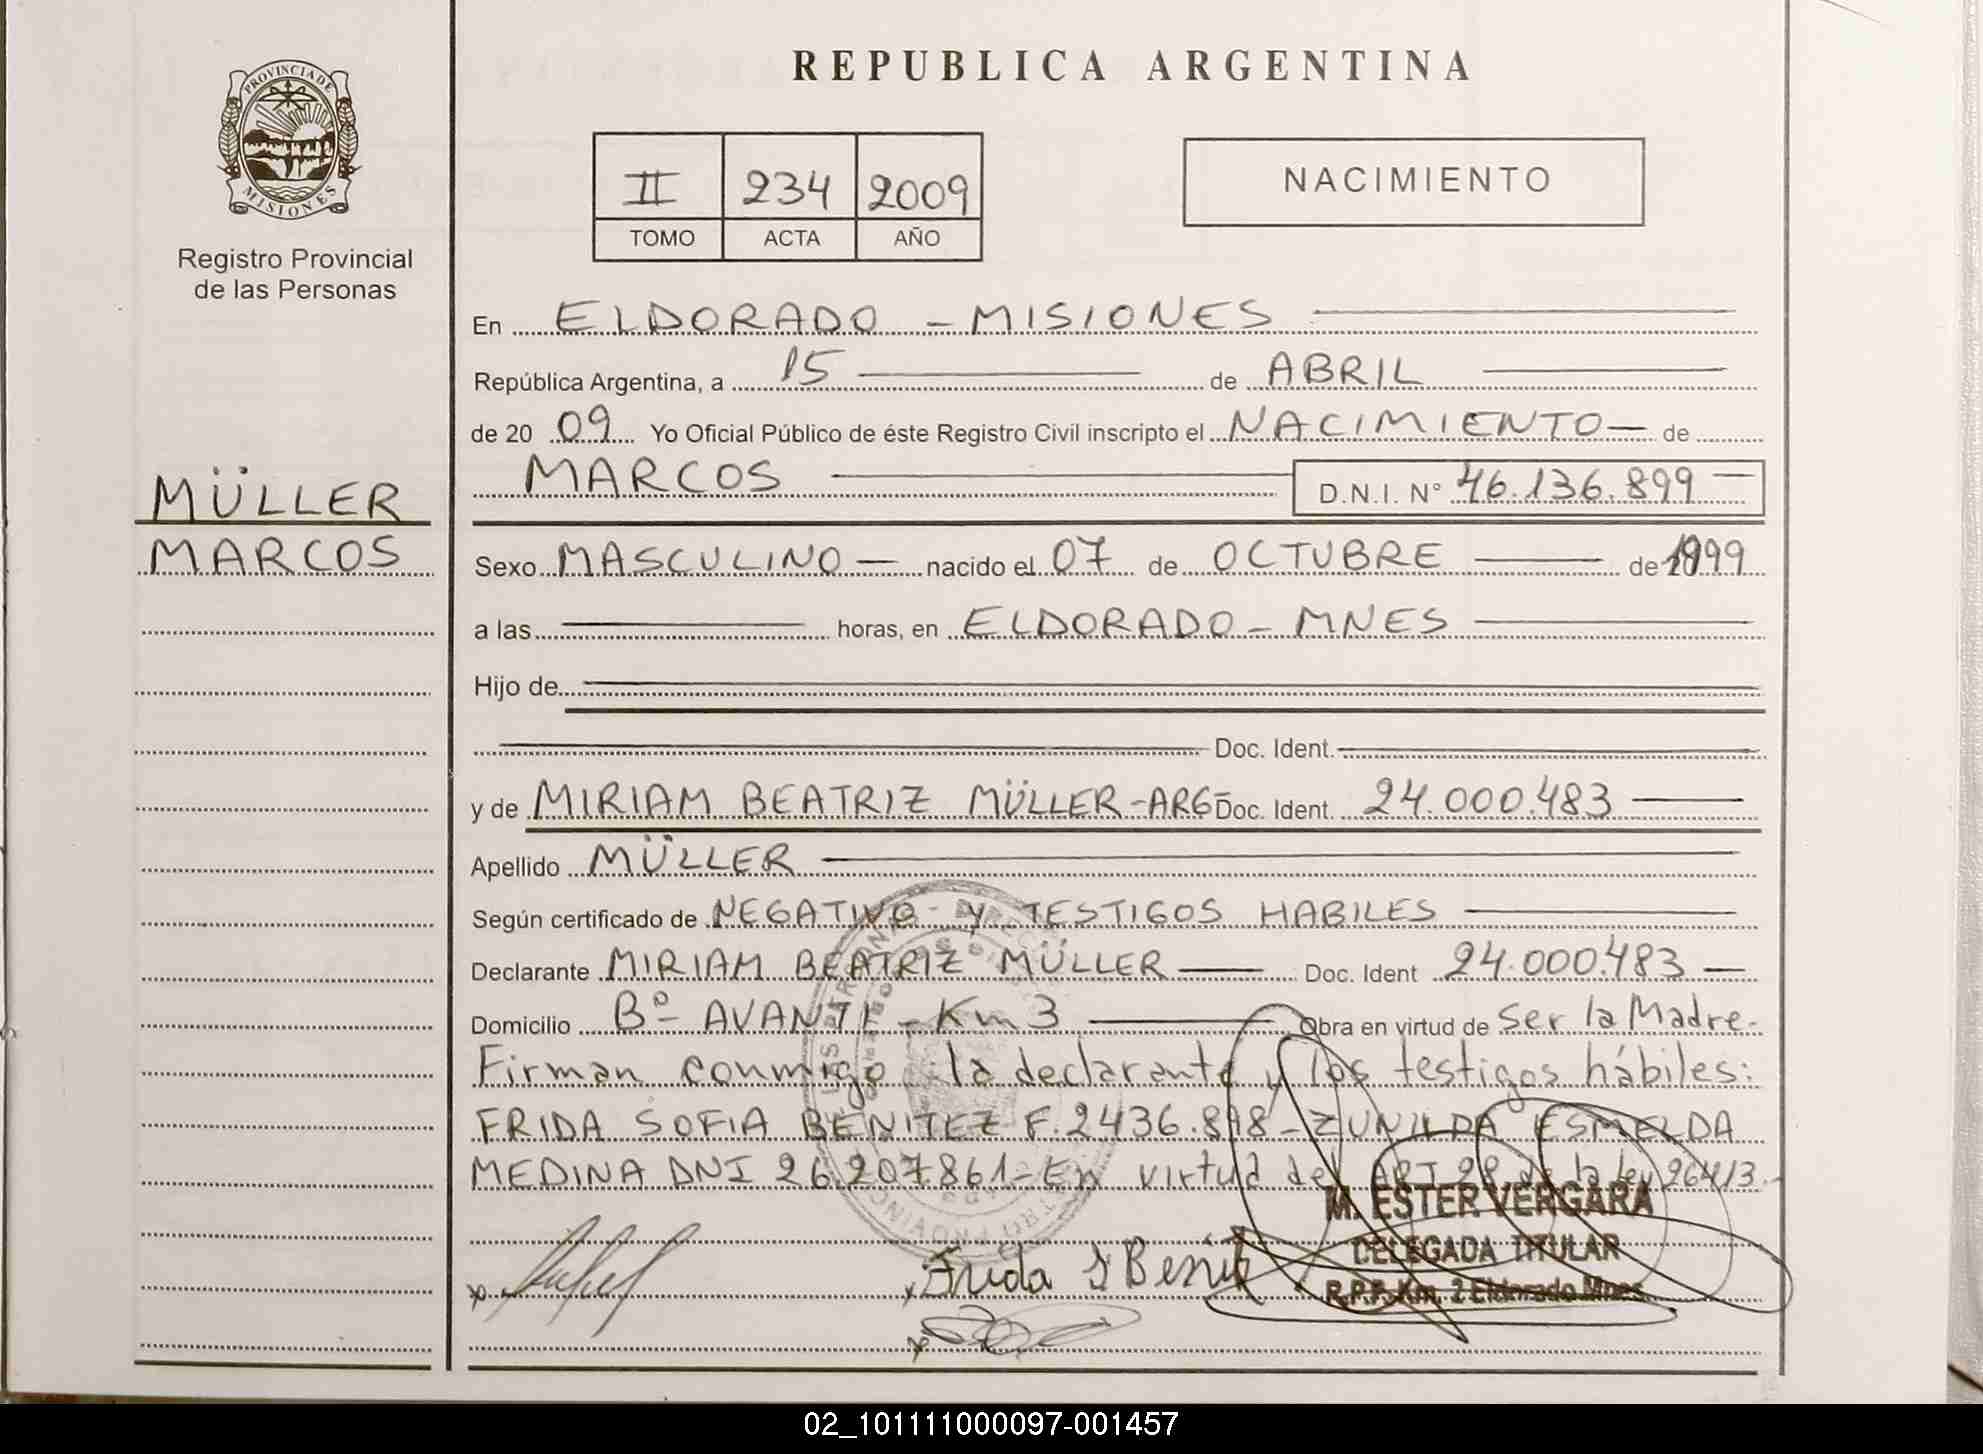 REPUBLICA ARGENTINA
PROVINCIA DE
MISIONES
Registro Provincial
de las Personas
II 234 2009
TOMO ACTA AÑO
NACIMIENTO
En ELDORADO - MISIONES
República Argentina, a 15 de ABRIL
de 20 09 Yo Oficial Público de éste Registro Civil inscripto el NACIMIENTO de
MARCOS D.N.I. N° 46.136.899
MÜLLER
MARCOS
Sexo MASCULINO nacido el 07 de OCTUBRE de 1999
a las horas, en ELDORADO - MNES
Hijo de
Doc. Ident.
y de MIRIAM BEATRIZ MÜLLER-ARG- Doc. Ident. 24.000.483
Apellido MÜLLER
Según certificado de NEGATIVO Y TESTIGOS HABILES
Declarante MIRIAM BEATRIZ MÜLLER Doc. Ident 24.000.483
Domicilio Bº AVANTI - Km 3 Obra en virtud de Ser la Madre.
Firman conmigo la declarante y los testigos hábiles:
FRIDA SOFIA BENITEZ F.2436.898 - ZUNILDA ESMELDA
MEDINA DNI 26.207.861 - En virtud del ART 28 de la ley 26413.-
M. ESTER VERGARA
DELEGADA TITULAR
R.P.P. Km. 2 Eldorado Mnes
Frida S Benitez
02_101111000097-001457